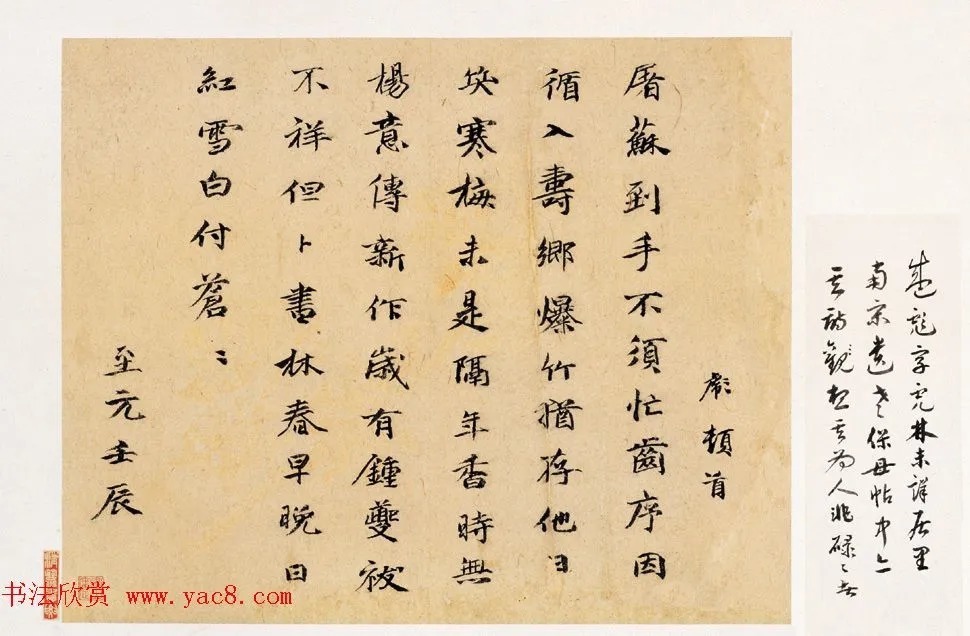 彪頓首
屠蘇到手不須忙齒序因
循入壽鄉爆竹猶存他日
突寒梅未是隔年香時無
楊意傳新作歲有鍾夔袚
不祥但卜書林春早晚日
紅雪白付蒼〻
至元壬辰
彪字
林未詳居里
南宗遺老保母帖中亦
其詩觀
其為人非碌〻者
书法欣赏 www.yac8.com